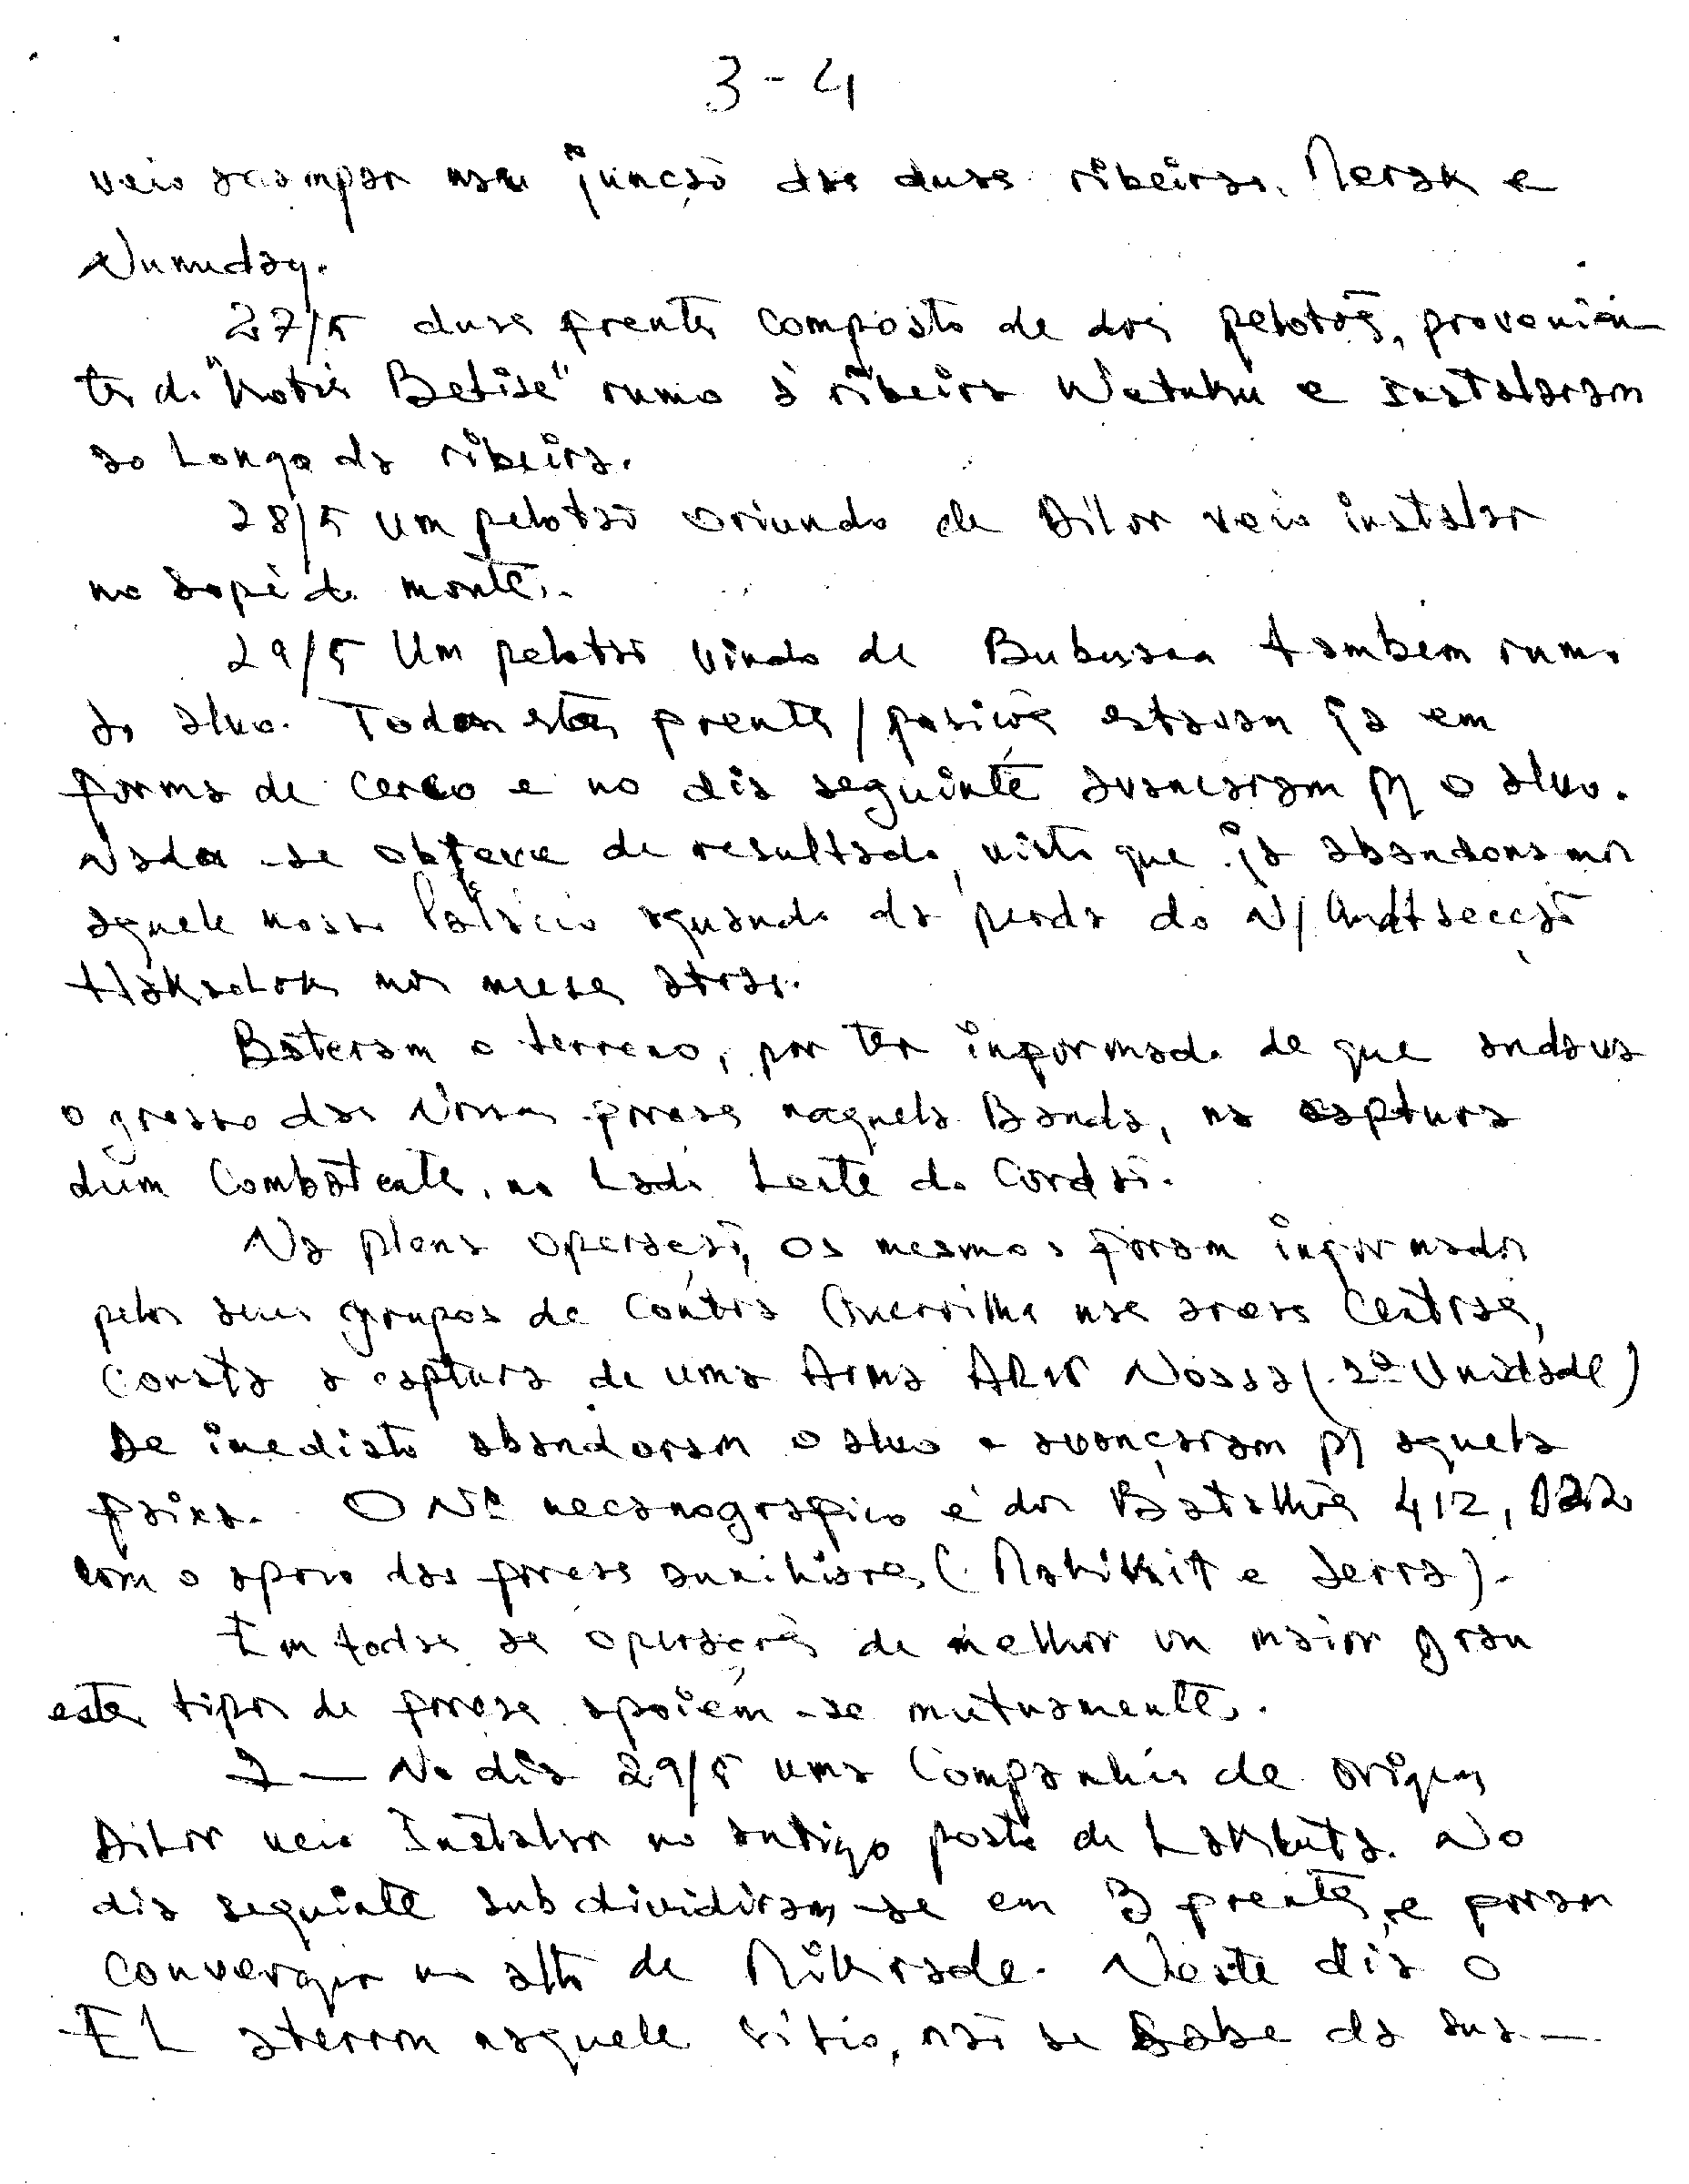 3-4
veio acampar na junção das duas ribeiras. Merak e
Numuday.
27/5 duas frentes composto de dois pelotões, provenien-
tes de "Kotis Betise" rumo à ribeira Wetuku e instalaram
ao longo da ribeira.
28/5 um pelotão oriundo de Dilor veio instalar
no sopé do monte.
29/5 Um pelotão vindo de Bubusaa tambem rumo
ao alvo. Todas estas frentes/posicões estavam ja em
forma de cerco e no dia seguinte avancaram p/ o alvo.
Nada se obteve de resultado, visto que já abandonamos
aquele nosso Palácio aquando da perda do N/ Cmdt secção
Haksolok nos meses atras.
Bateram o terreno, por ter informado de que andava
o grosso das Nossas forças naquela Banda, na captura
dum Combatente, no Lado Leste do Cordão.
Na plena operação, os mesmos foram informados
pelos seus grupos de Contra Guerrilha nas areas Centrais,
Consta a captura de uma Arma Nossa (2ª Unidade)
De imediato abandoram o alvo e avançaram p/ aquela
faixa. O Nº mecanografico é dos Batalhões 412,
com o apoio das forças auxiliares (Mahikit e Serra).
Em todas as operações de melhor ou maior grau
estes tipos de forças apoiem-se mutuamente.
7 — No dia 29/5 uma Companhia de origem
Dilor veio Instalar no antigo posto de Lakluta. No
dia seguinte subdividiram-se em 3 frentes, e foram
convergir no alto de Mikrade. Neste dia o
EL aterrou naquele sítio, não se sabe da sua —